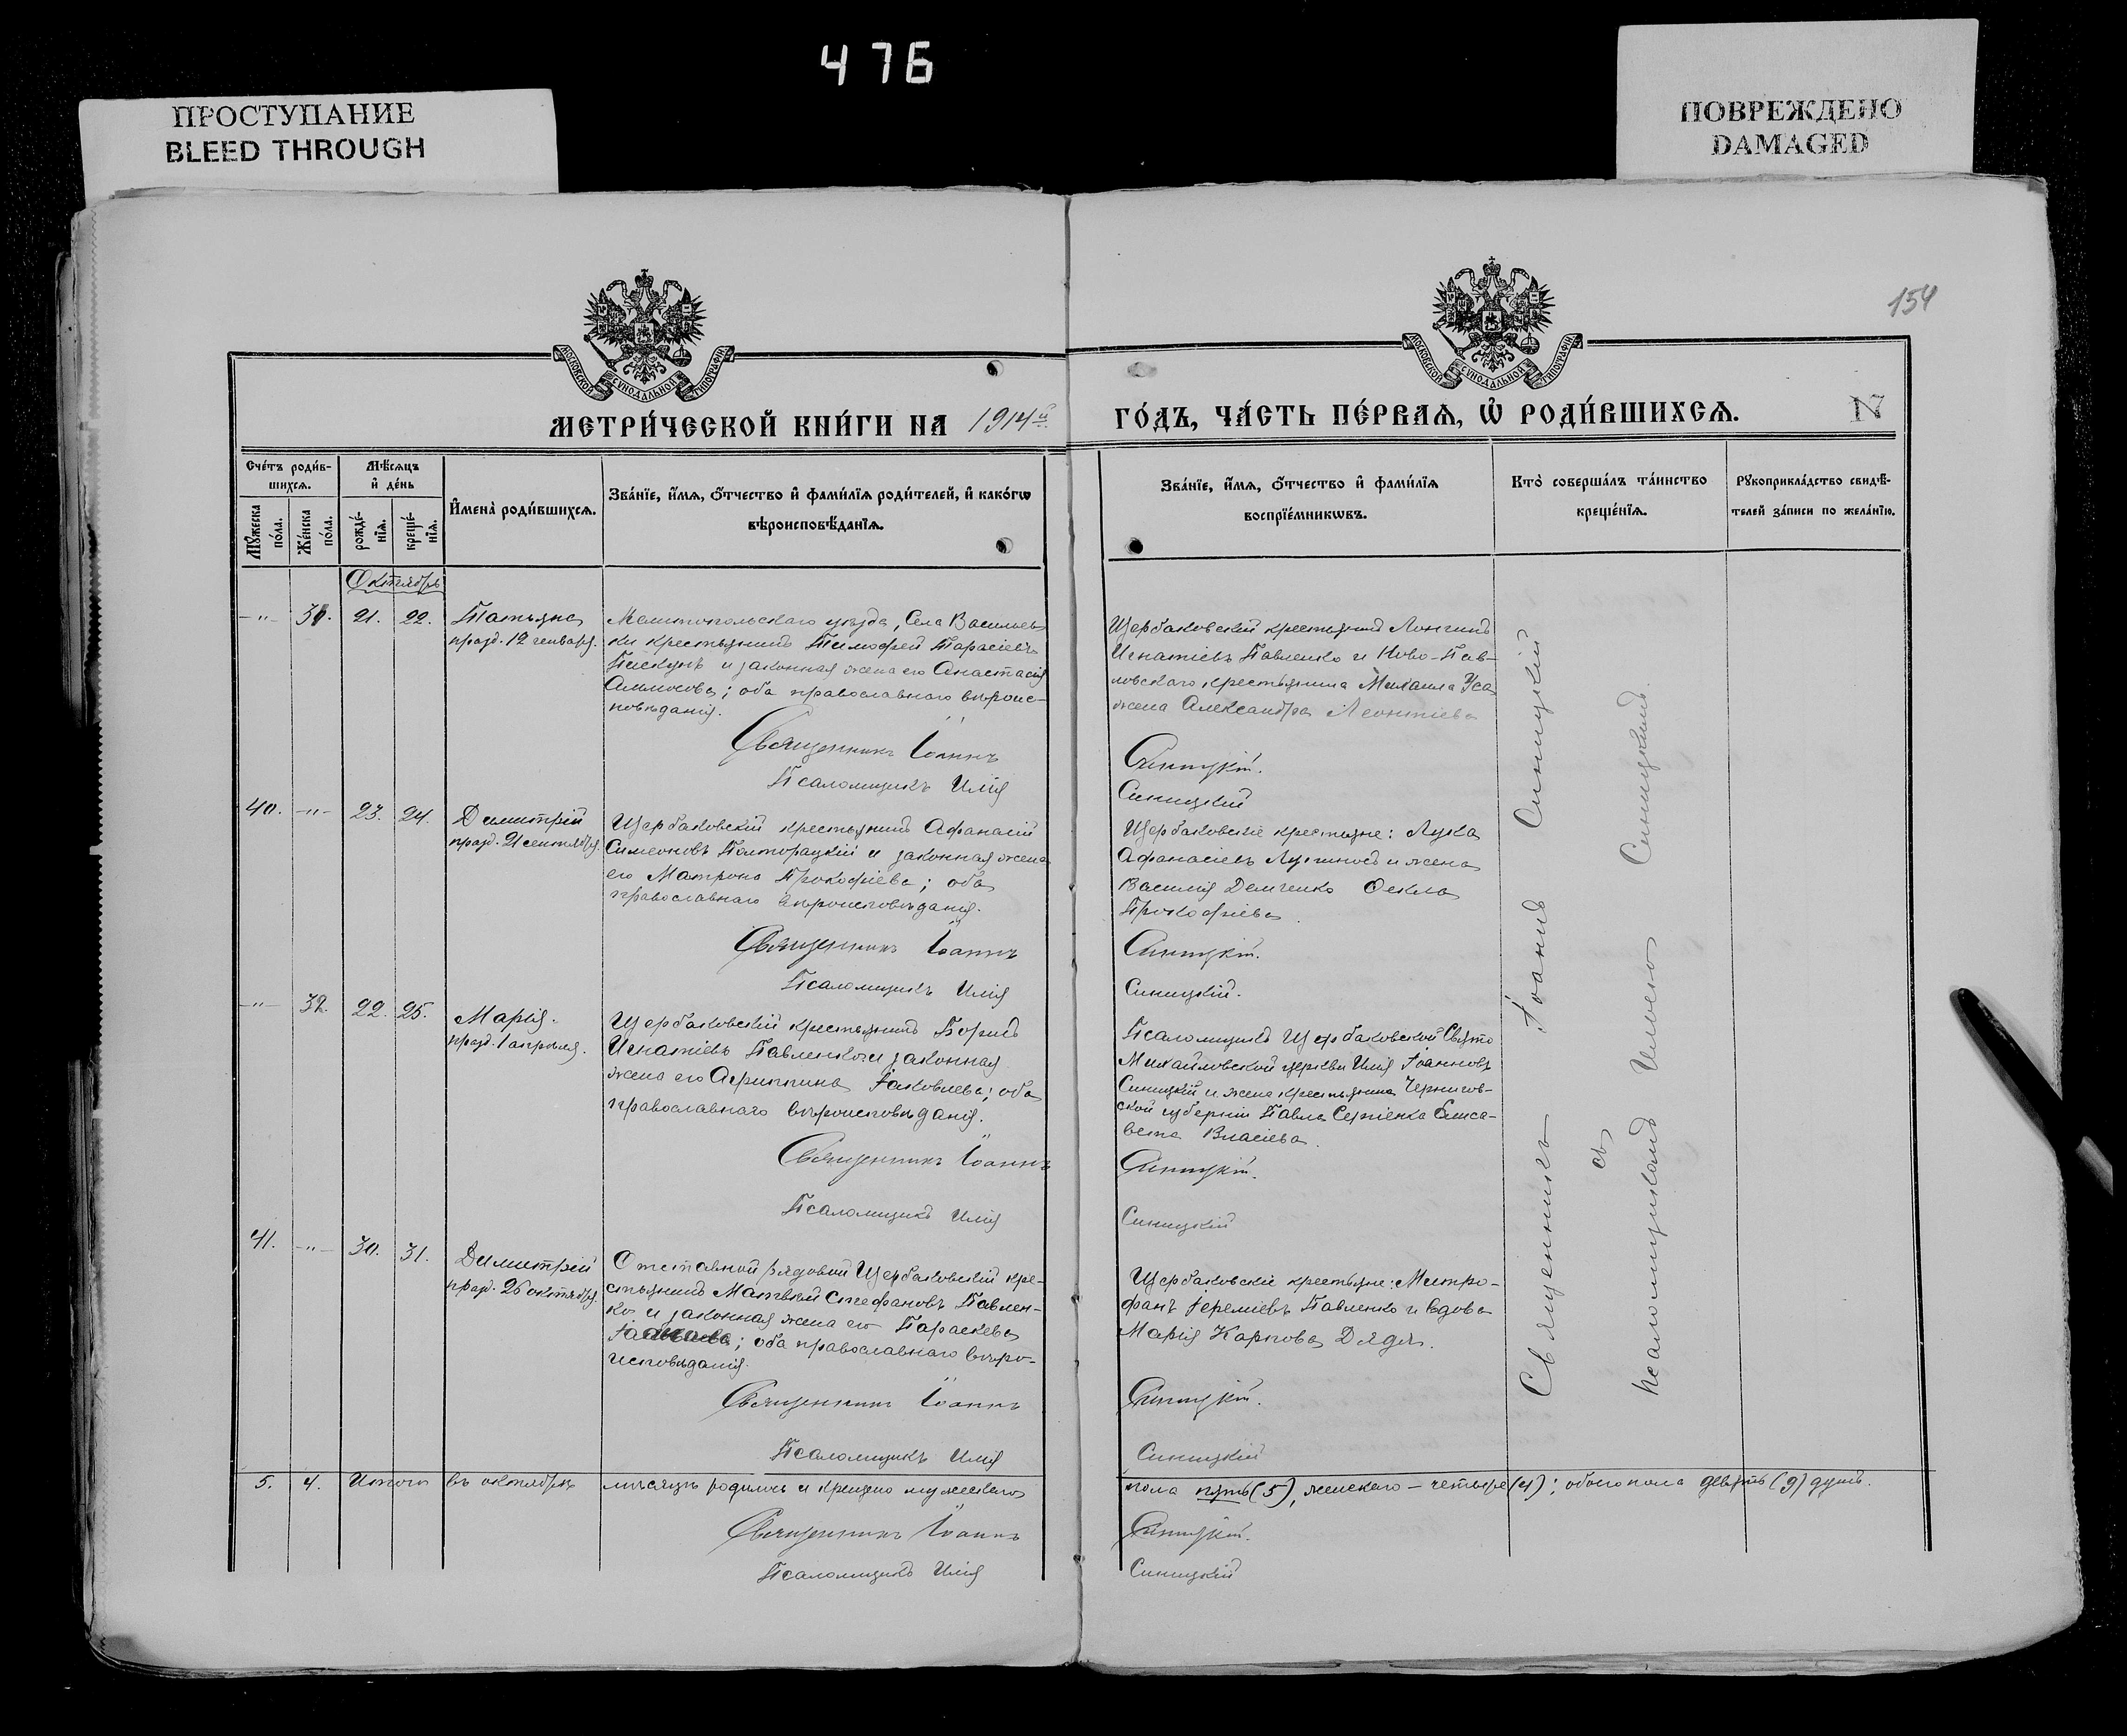 476
ПРОСТУПАНИЕ
BLEED THROUGH
ПОВРЕЖДЕНО
DAMAGED
154
МОСКОВСКОЙ СѴНОДАЛЬНОЙ ТИПОГРАФІИ
МОСКОВСКОЙ СѴНОДАЛЬНОЙ ТИПОГРАФІИ
МЕТРИ́ЧЕСКОЙ КНИ́ГИ НА 1914й
ГО́ДЪ, ЧА́СТЬ ПЕ́РВАѦ, Ѡ҆ РОДИ́ВШИХСѦ.
N
Сче́тъ роди́в-
шихсѧ.
Мꙋ́жеска
по́ла.
Же́нска
по́ла.
Мѣ́сѧцъ
и҆ де́нь
рожде́-
нїѧ.
креще́-
нїѧ.
И҆мена̀ роди́вшихсѧ.
Зва́нїе, и҆́мѧ, ѻ҆́тчество и҆ фами́лїѧ роди́телей, и҆ како́гѡ
вѣроисповѣ́данїѧ.
Зва́нїе, и҆́мѧ, ѻ҆́тчество и҆ фами́лїѧ
воспрїе́мникѡвъ.
Кто̀ соверша́лъ та́инство
креще́нїѧ.
Рꙋкоприкла́дство свидѣ́-
телей за́писи по жела́нїю.
Октябрь
-"- 31. 21. 22.
Татьяна
празд. 12 генваря.
Мелитопольскаго уѣзда, Села Васильев-
ки крестьянинъ Тимофей Тарасіевъ
Пискунъ и законная жена его Анастасія
Аммосова; оба православнаго вѣроис-
повѣданія.
Священникъ Іоаннъ
Псаломщикъ Илія
Щербаковскій крестьянинъ Лонгинъ
Игнатіевъ Павленко и Ново-Пав-
ловскаго, крестьянина Михаила Уса
жена Александра Леонтіева
Синицкій.
Синицкій
40. -"- 23. 24.
Димитрій
празд. 21 сентября.
Щербаковскій крестьянинъ Афанасій
Симеоновъ Полторацкій и законная жена
его Матрона Прокофіева; оба
православнаго вѣроисповѣданія.
Священникъ Іоаннъ
Псаломщикъ Илія
Щербаковскіе крестьяне: Лука
Афанасіевъ и жена
Василія Демченко Ѳекла
Прокофіева.
Синицкій.
Синицкій.
-"- 32. 22. 25.
Марія.
празд. 1 апрѣля.
Щербаковскій крестьянинъ Борисъ
Игнатіевъ Павленко и законная
жена его Агриппина Іаковлева; оба
православнаго вѣроисповѣданія.
Священникъ Іоаннъ
Псаломщикъ Илія
Псаломщикъ Щербаковской Свято
Михайловской церкви Илія Іоанновъ
Синицкій и жена крестьянина Чернигов-
ской губерніи Павла Сергіенка Елиса-
вета Власіева.
Синицкій.
Синицкій
41. -"- 30. 31.
Димитрій
празд. 26 октября.
Отставной рядовой Щербаковскій кре-
стьянинъ Матвѣй Стефановъ Павлен-
ко и законная жена его Параскева
; оба православнаго вѣро-
исповѣданія.
Священникъ Іоаннъ
Псаломщикъ Илія
Щербаковскіе крестьяне: Митро-
фанъ Іереміевъ Павленко и вдова
Марія Карпова Дядя.
Синицкій.
Синицкій
Священникъ Іоаннъ Синицкій
съ
псаломщикомъ Иліею Синицкимъ.
5. 4. Итого въ октябрѣ мѣсяцѣ родилось и крещено мужескаго
пола пять (5), женскаго - четыре (4); обоего пола девять (9) душъ.
Священникъ Іоаннъ
Синицкій.
Псаломщикъ Илія
Синицкій